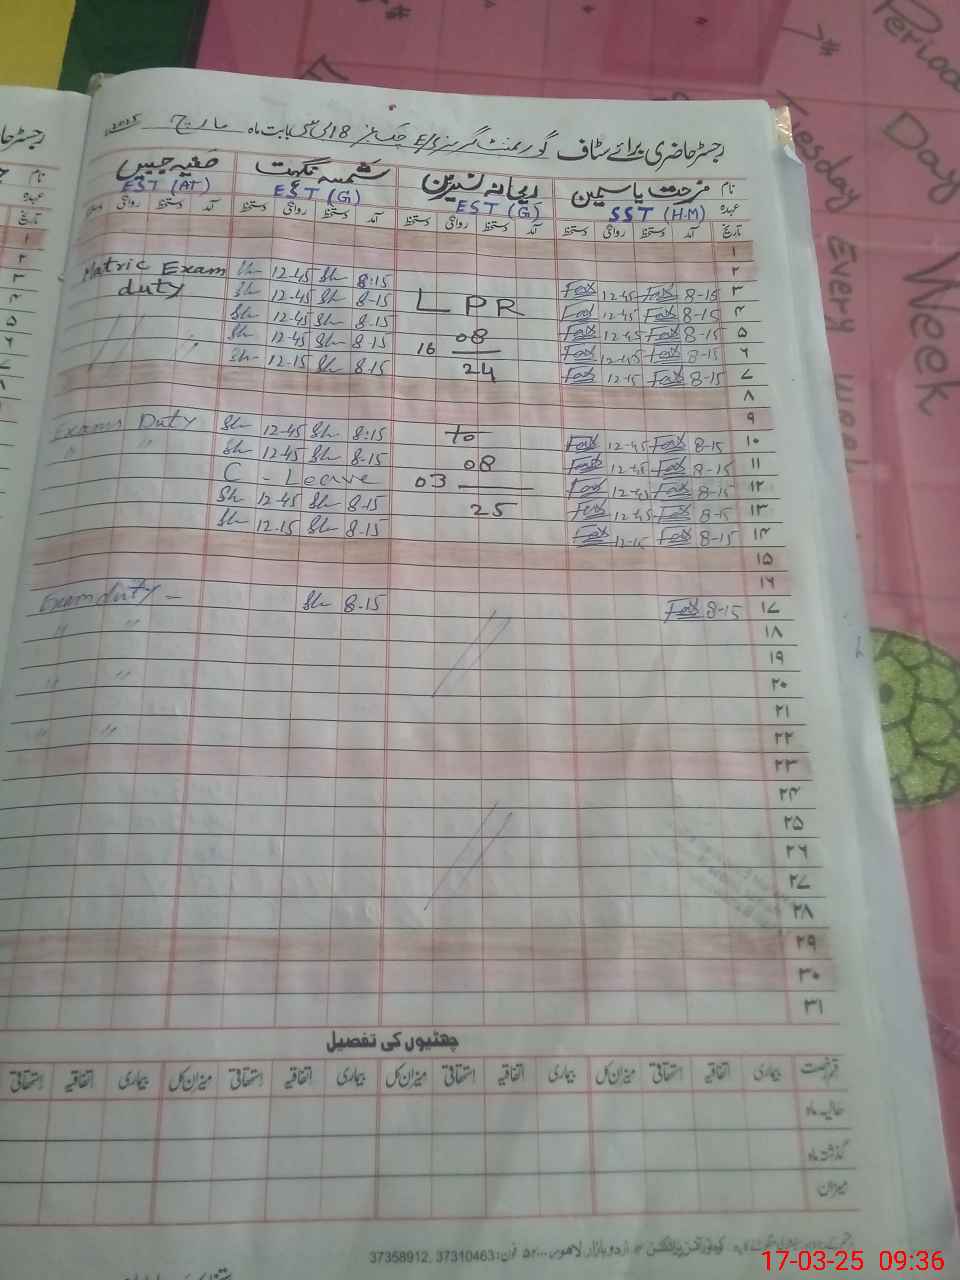 رجسٹر حاضری برائے سٹاف گورنمنٹ گرلز E/S چک نمبر 18 بابت ماہ مارچ 2025
نام فرحت یاسمین ریحانہ نسرین شمسہ نگہت صفیہ جبیں
عہدہ SST (H.M) EST (G) EST (G) EST (AT)
تاریخ آمد دستخط روانگی دستخط آمد دستخط روانگی دستخط آمد دستخط روانگی دستخط آمد دستخط روانگی دستخط
۱
۲
Matric Exam Sh 12-45 Sh 8:15 Fax 12-45 Fax 8-15 ۳
duty Sh 12-45 Sh 8-15 L P R Fax 12-45 Fax 8-15 ۴
Sh 12-45 Sh 8.15 08 Fax 12-45 Fax 8-15 ۵
Sh 12-45 Sh 8.15 16 Fax 12-45 Fax 8-15 ۶
Sh 12-15 Sh 8.15 24 Fax 12-15 Fax 8-15 ۷
۸
۹
Exams Duty Sh 12-45 Sh 8:15 to Fax 12-45 Fax 8-15 ۱۰
" " Sh 12-45 Sh 8-15 08 Fax 12-45 Fax 8-15 ۱۱
C - Leave 03 Fax 12-45 Fax 8-15 ۱۲
Sh 12-45 Sh 8-15 25 Fax 12-45 Fax 8-15 ۱۳
Sh 12-15 Sh 8-15 Fax 12-15 Fax 8-15 ۱۴
۱۵
۱۶
Exam duty - Sh 8-15 Fax 8-15 ۱۷
" " ۱۸
۱۹
" " ۲۰
۲۱
" " ۲۲
۲۳
۲۴
۲۵
۲۶
۲۷
۲۸
۲۹
۳۰
۳۱
چھٹیوں کی تفصیل
قسم رخصت بیماری اتفاقیہ استحقاقی میزان کل بیماری اتفاقیہ استحقاقی میزان کل بیماری اتفاقیہ استحقاقی میزان کل بیماری اتفاقیہ استحقاقی
حالیہ ماہ
گذشتہ ماہ
میزان
اردو بازار لاہور فون: 37310463, 37358912
Period
Day
Week
Tuesday
Every
17-03-25 09:36